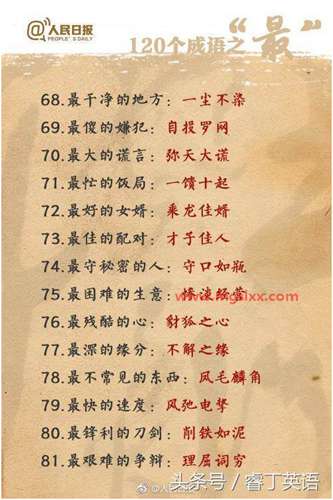 @人民日报
PEOPLE'S DAILY
120个成语之“最”
68.最干净的地方：一尘不染
69.最傻的嫌犯：自投罗网
70.最大的谎言：弥天大谎
71.最忙的饭局：一馈十起
72.最好的女婿：乘龙佳婿
73.最佳的配对：才子佳人
74.最守秘密的人：守口如瓶
75.最困难的生意：惨淡经营
76.最残酷的心：豺狐之心
77.最深的缘分：不解之缘
78.最不常见的东西：凤毛麟角
79.最快的速度：风驰电掣
80.最锋利的刀剑：削铁如泥
81.最艰难的争辩：理屈词穷
头条号 / 睿丁英语